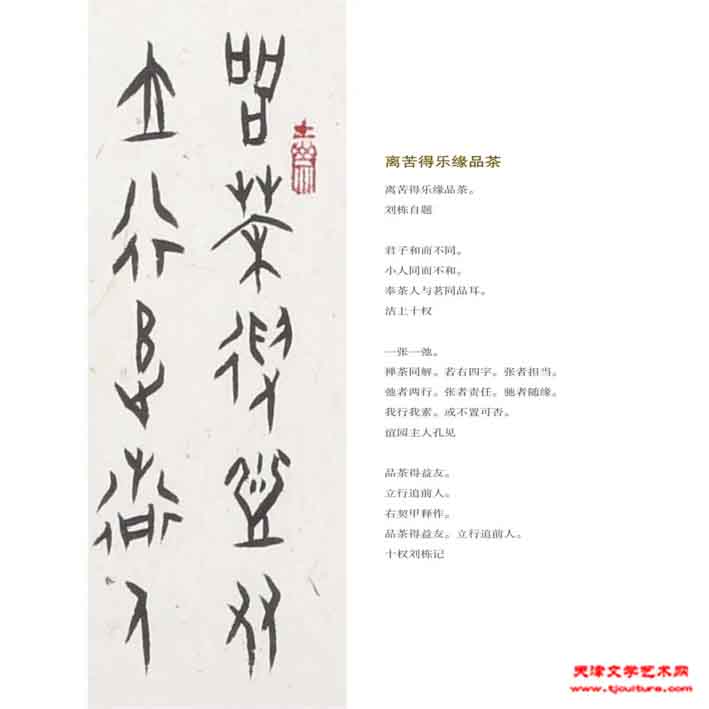 品茶得益友
立行追前人
离苦得乐缘品茶
离苦得乐缘品茶。
刘栋自题
君子和而不同。
小人同而不和。
奉茶人与茗同品耳。
沽上十权
一张一弛。
禅茶同解。若右四字。张者担当。
弛者两行。张者责任。驰者随缘。
我行我素。或不置可否。
谊园主人孔见
品茶得益友。
立行追前人。
右契甲释作。
品茶得益友。立行追前人。
十权刘栋记
天津文学艺术网
www.tjculture.com